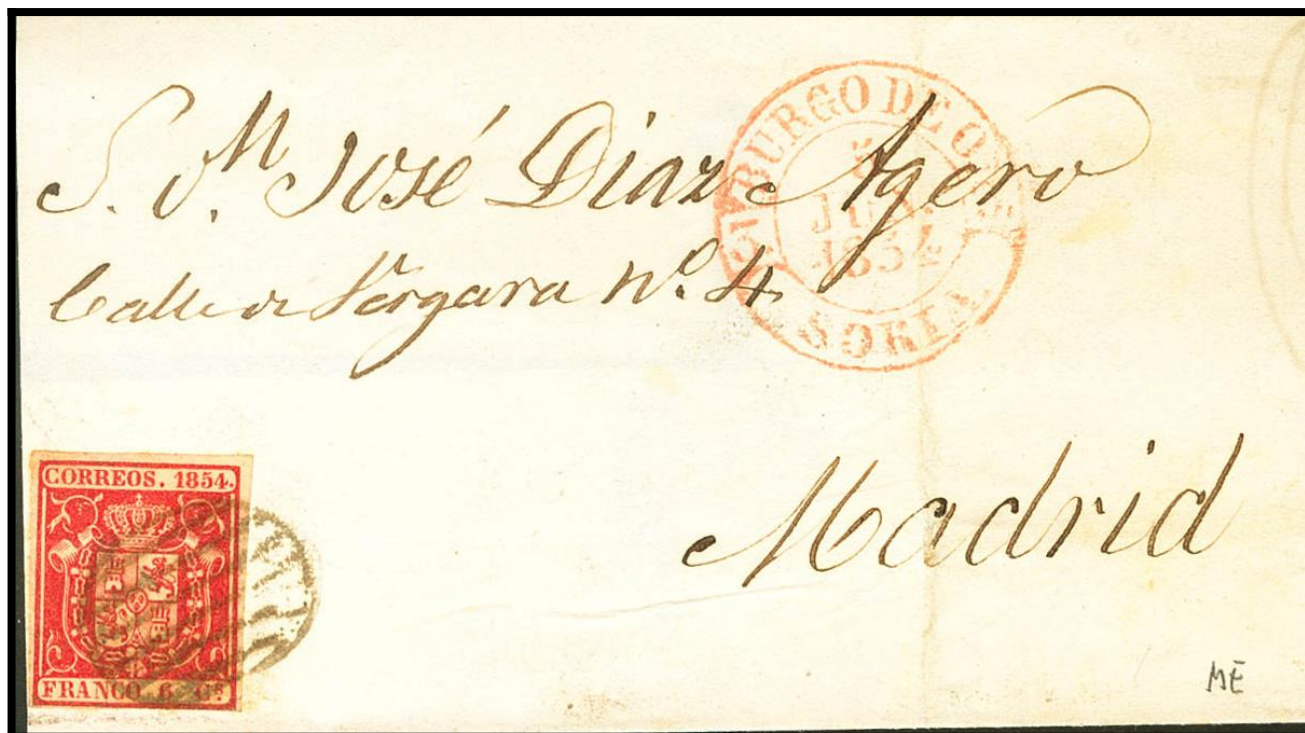 S. Dn. José Diaz Agero
Calle de Vergara No. 4
BURGO DE O
5
1854
SORIA
Madrid
CORREOS. 1854.
FRANCO. 6 Cs.
ME